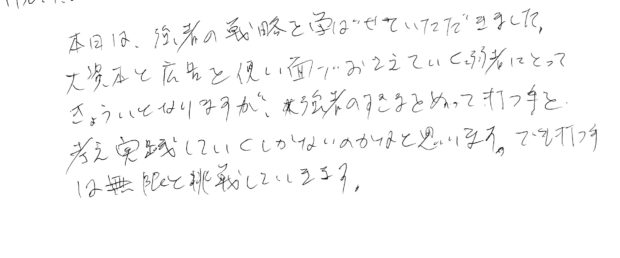 本日は、強者の戦略を学ばせていただきました。
大資本と広告を使い面でおさえていく弱者にとって
きょういとなりますが、強者のすきまをぬって打つ手を
考え実践していくしかないのかなと思います。でも打つ手
は無限と挑戦していきます。